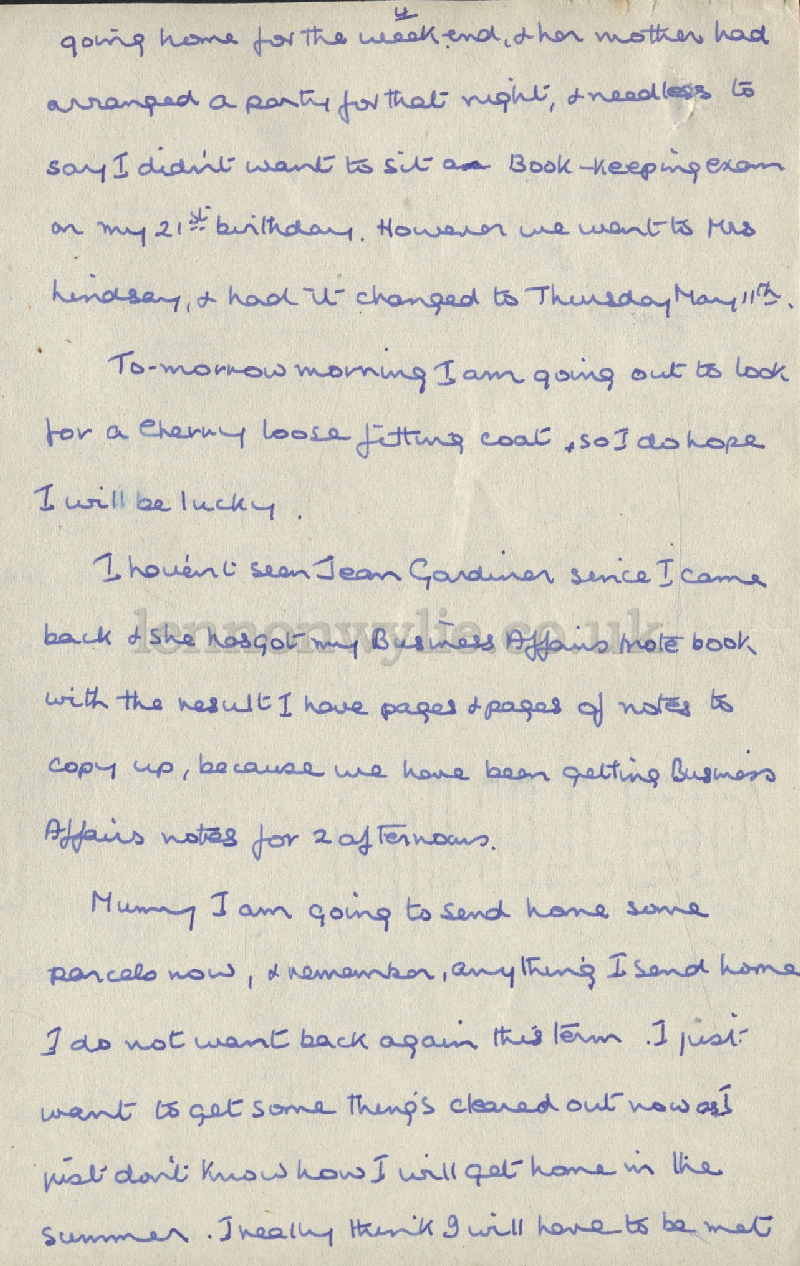 going home for the week-end, & her mother had
arranged a party for that night, & needless to
say I didn't want to sit a Book-keeping exam
on my 21st birthday. However we went to Mrs
Lindsay, & had it changed to Thursday May 11th.
To-morrow morning I am going out to look
for a Cherry loose fitting coat, so I do hope
I will be lucky.
I haven't seen Jean Gardiner since I came
back & she has got my Business Affairs note book
with the result I have pages & pages of notes to
copy up, because we have been getting Business
Affairs notes for 2 afternoons.
Mummy I am going to send home some
parcels now, & remember, anything I send home
I do not want back again this term. I just
want to get some things cleared out now as I
just don't know how I will get home in the
summer. I really think I will have to be met
lennonwylie.co.uk